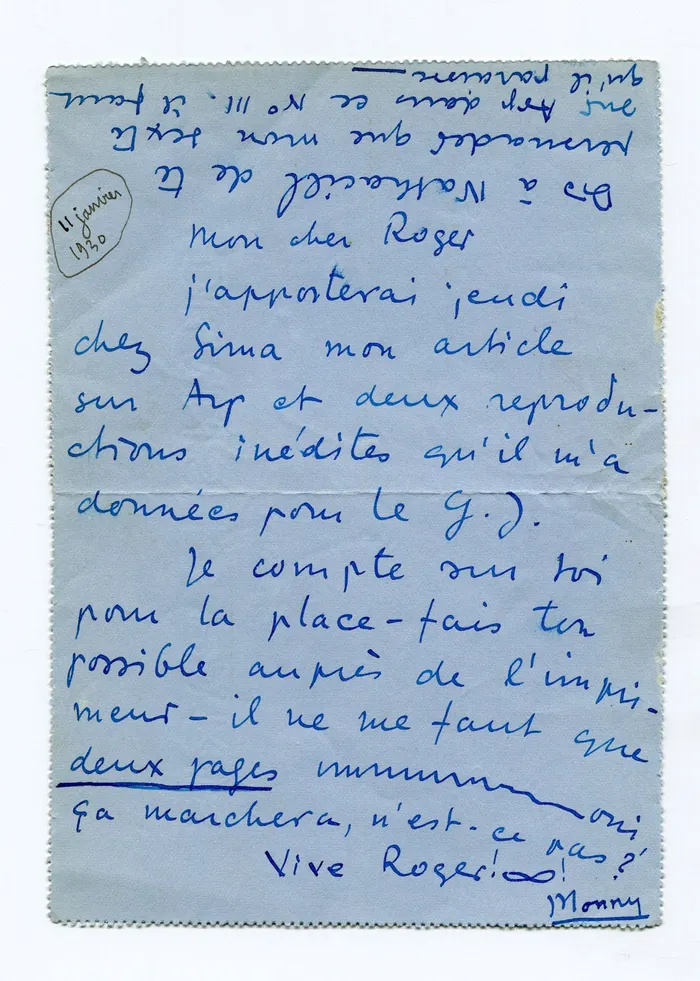 11 janvier
1930
Mon cher Roger
j'apporterai jeudi
chez Sima mon article
sur Arp et deux reprodu-
ctions inédites qu'il m'a
données pour le G.J.
Je compte sur toi
pour la place - fais ton
possible auprès de l'impri-
meur - il ne me faut que
deux pages oui
ça marchera, n'est-ce pas?
Vive Roger! ∞!
Monny
Dis à Nathaniel de te
persuader que mon texte
sur Arp dans ce N° III. il faut
qu'il paraisse